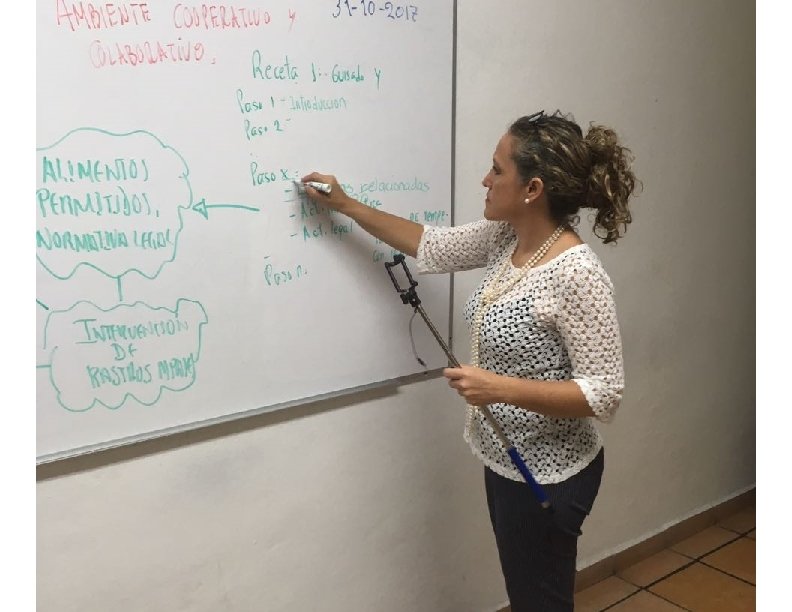 AMBIENTE COOPERATIVO Y
COLABORATIVO.
31-10-2017
Receta 1:- Guisado y
Paso 1 - Introducción
Paso 2 -
Paso x -
relacionadas
- Act.
- Act. legal
de
Paso n.
ALIMENTOS
PERMITIDOS,
NORMATIVA LEGAL
INTERVENCION
DE
RASTROS